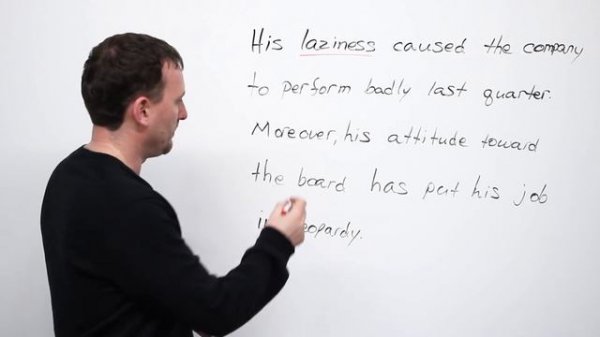 His laziness caused the company
to perform badly last quarter.
Moreover, his attitude toward
the board has put his job
in jeopardy.